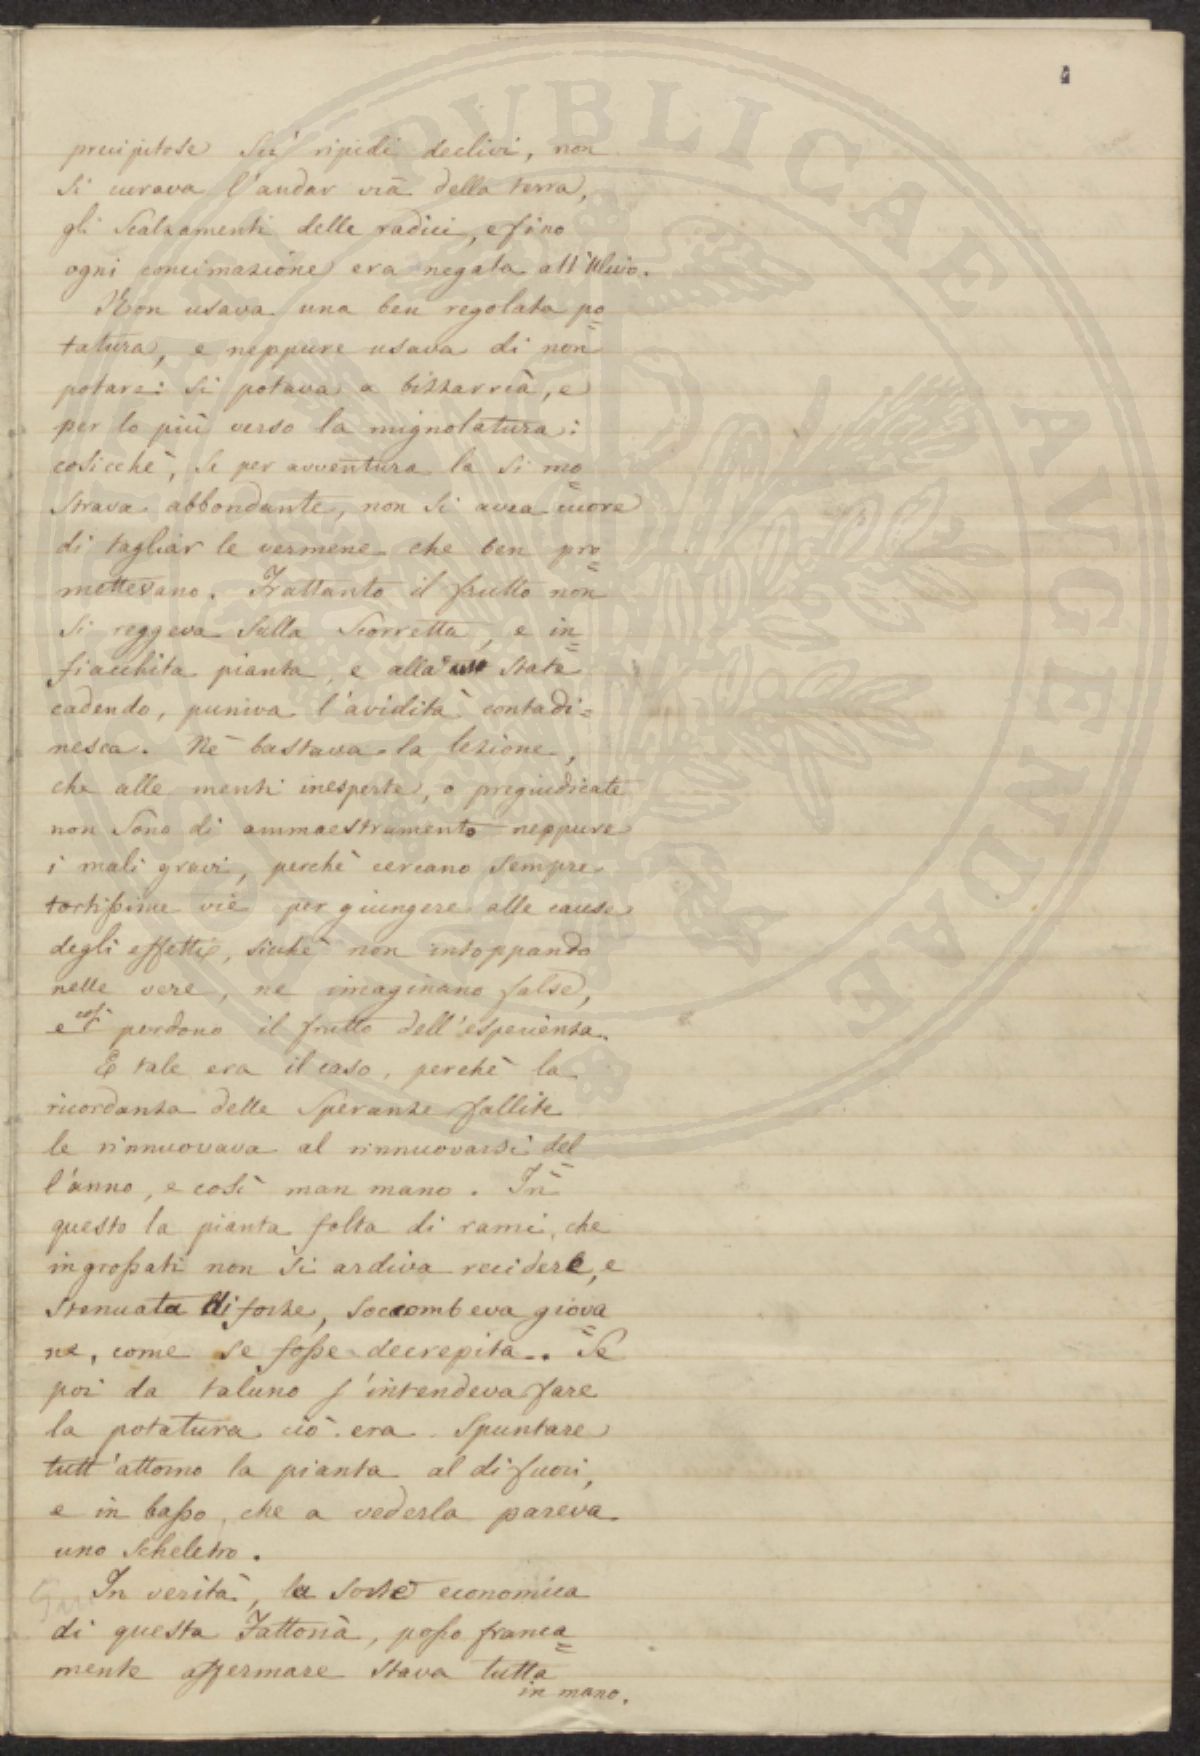 precipitose su' ripidi declivi, non
si curava l'andar via della terra,
gli scalzamenti delle radici, e fino
ogni concimazione era negata all'Ulivo.
Non usava una ben regolata po=
tatura, e neppure usava di non
potare: si potava a bizzarria, e
per lo più verso la mignolatura:
cosicchè, se per avventura la si mo=
strava abbondante, non si avea cuore
di tagliar le vermene che ben pro=
mettevano. Frattanto il frutto non
si reggeva sulla scorretta, e in=
fiacchita pianta, e alla state
cadendo, puniva l'avidità contadi=
nesca. Nè bastava la lezione,
che alle menti inesperte, o pregiudicate
non sono di ammaestramento neppure
i mali gravi, perchè cercano sempre
tortissime vie per giungere alle cause
degli effetti, sicchè non intoppando
nelle vere, ne imaginano false,
e così perdono il frutto dell'esperienza.
E tale era il caso, perchè la
ricordanza delle speranze fallite
le rinnuovava al rinnuovarsi del=
l'anno, e così man mano. In
questo la pianta folta di rami, che
ingrossati non si ardiva recidere, e
stenuata di forze, soccombeva giova=
ne, come se fosse decrepita. Se
poi da taluno s'intendeva fare
la potatura ciò era spuntare
tutt'attorno la pianta al di fuori,
e in basso, che a vederla pareva
uno scheletro.
In verità, la sorte economica
di questa Fattoria, posso franca=
mente affermare stava tutta
in mano.
PUBLICAE AUGENDAE